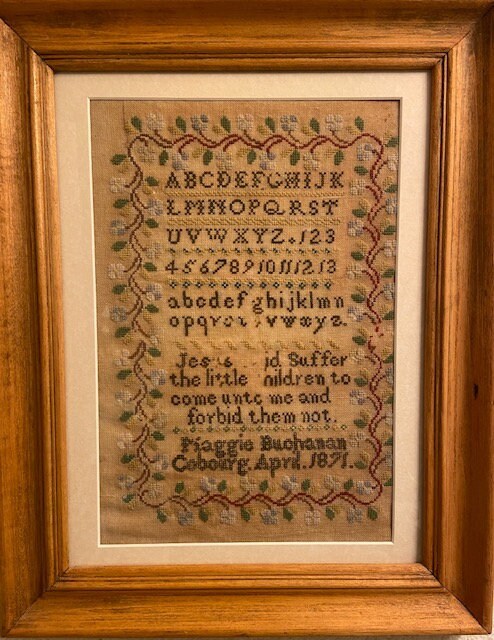 ABCDEFGHIJK
LMNOPQRST
UVWXYZ.123
45678910111213
abcdefghijklmn
opqrs vwxyz.
Jesus Suffer
the little to
come unto me and
forbid them not.
Maggie Buchanan
Cobourg. April. 1871.